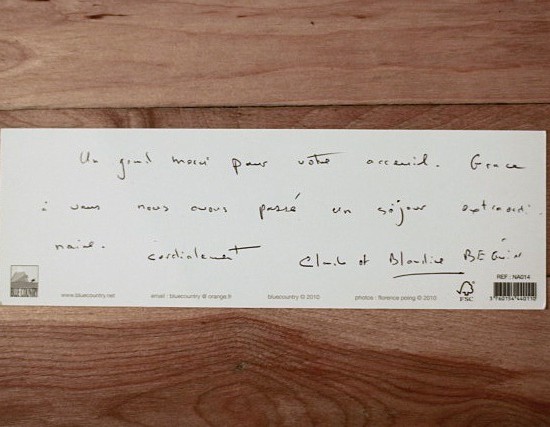 Un grand merci pour votre acceuil. Grace
à vous nous avons passé un séjour extraordi
naire. cordialement Claude et Blandine BEGUIN
REF : NA014
www.bluecountry.net email : bluecountry @ orange.fr bluecountry © 2010 photos : florence poing © 2010
FSC
3760154440110